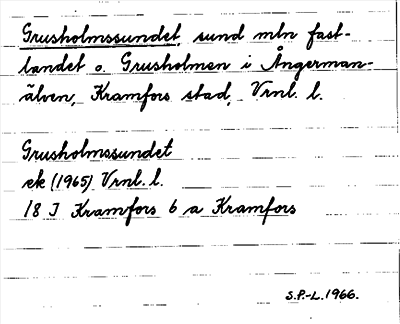 Grusholmssundet, sund mln fast-
landet o. Grusholmen i Ångerman-
älven, Kramfors stad, Vrnl. l.
Grusholmssundet
ek (1965) Vrnl. l.
18 I Kramfors 6 a Kramfors
S.P.-L. 1966.